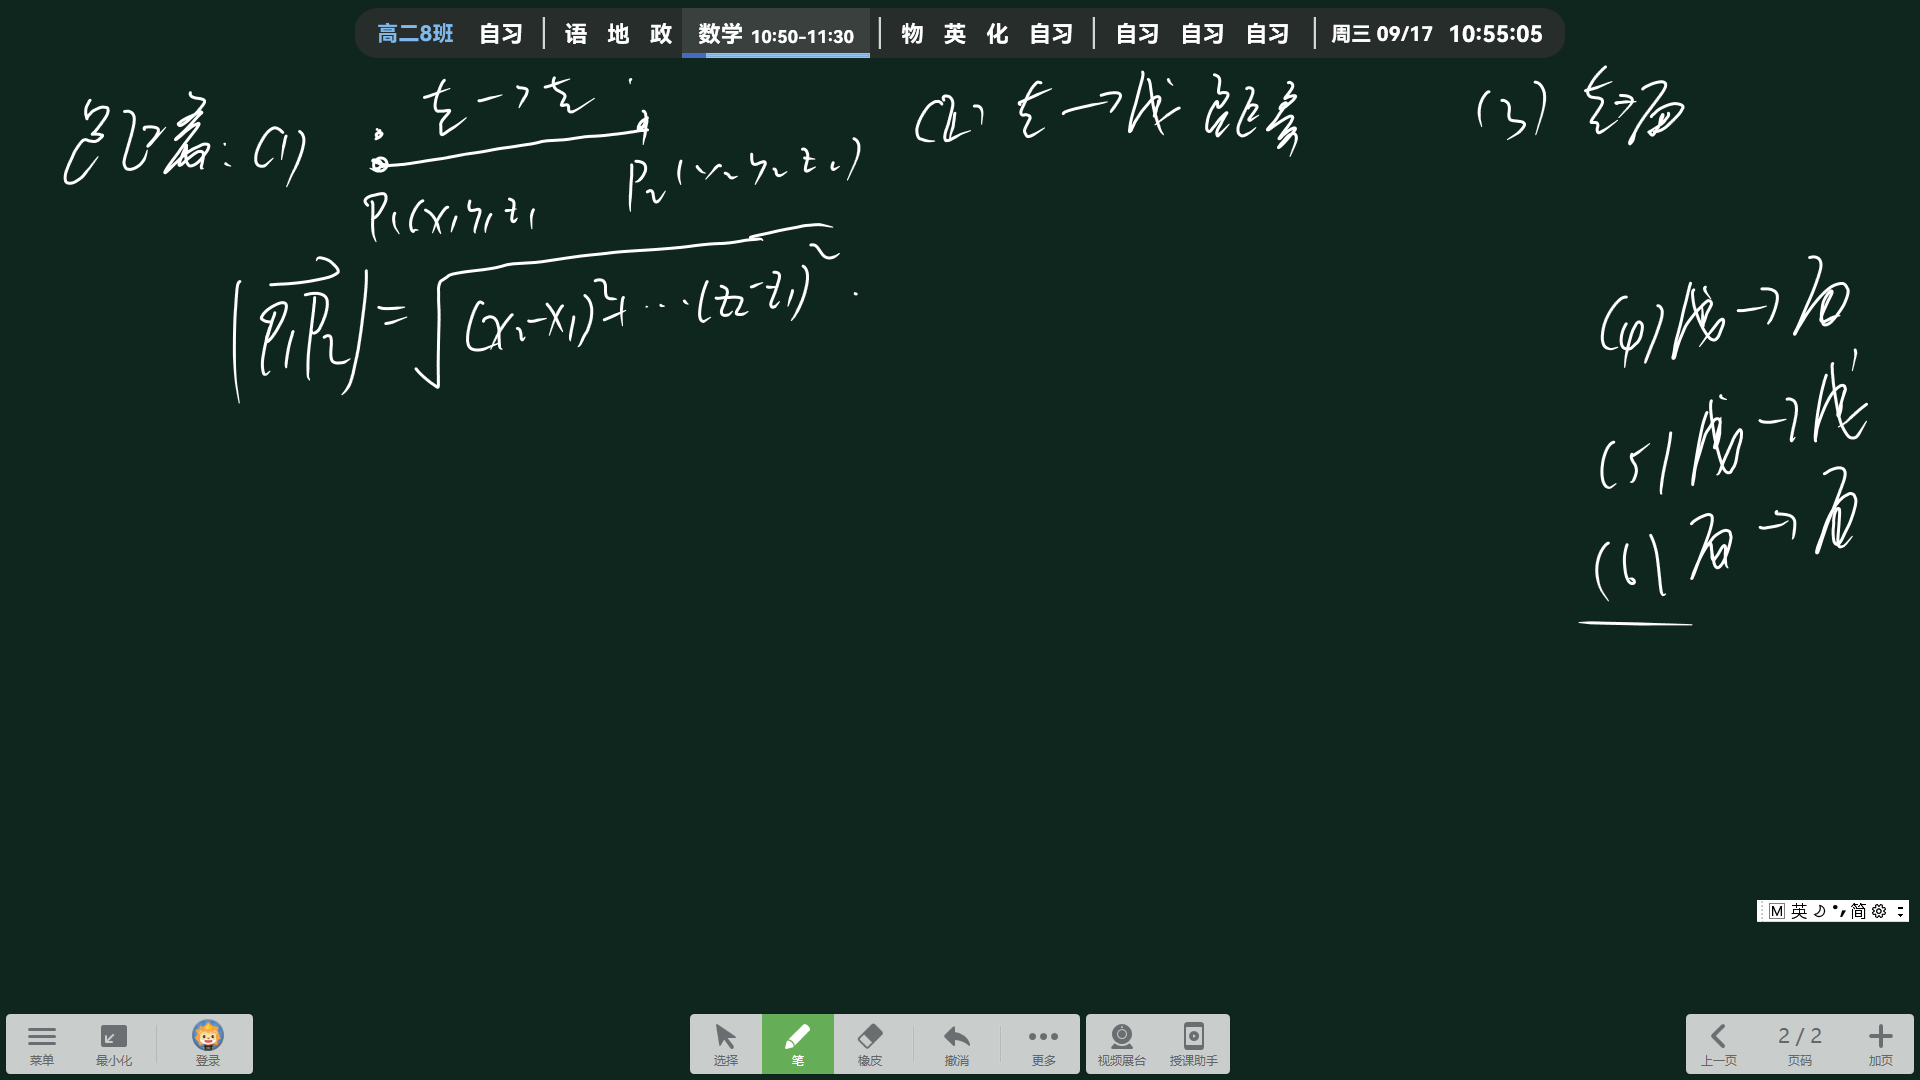 高二8班 自习 | 语 地 政 数学 10:50-11:30 | 物 英 化 自习 | 自习 自习 自习 | 周三 09/17 10:55:05
距离: (1) 点→点
(2) 点→线 距离
(3) 点→面
P₁(x₁ y₁ z₁
P₂(x₂ y₂ z₂)
|P₁P₂| = √(x₂-x₁)²+…(z₂-z₁)².
(4) 线→面
(5) 线→线
(6) 面→面
M 英 简
菜单 最小化 登录 选择 笔 橡皮 撤消 更多 视频展台 授课助手 上一页 2 / 2 页码 加页